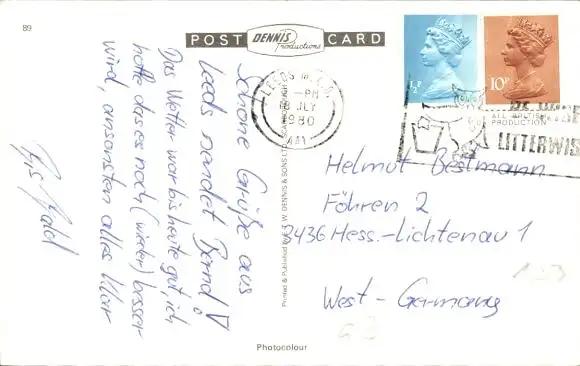 89
POST DENNIS Productions CARD
½P
10P
LEEDS
-PM
8 JLY
1980
BE WISE
LITTERWISE
ALL BRITISH
PRODUCTION
Schöne Grüße aus
Leeds sendet Bernd!
Das Wetter war bis heute gut, ich
hoffe das es noch (wieder) besser
wird, ansonsten alles klar
Bis bald
Printed & Published by E. T. W. DENNIS & SONS LTD., SCARBOROUGH
Helmut Bestmann
Föhren 2
3436 Hess.-Lichtenau 1
West-Germany
Photocolour